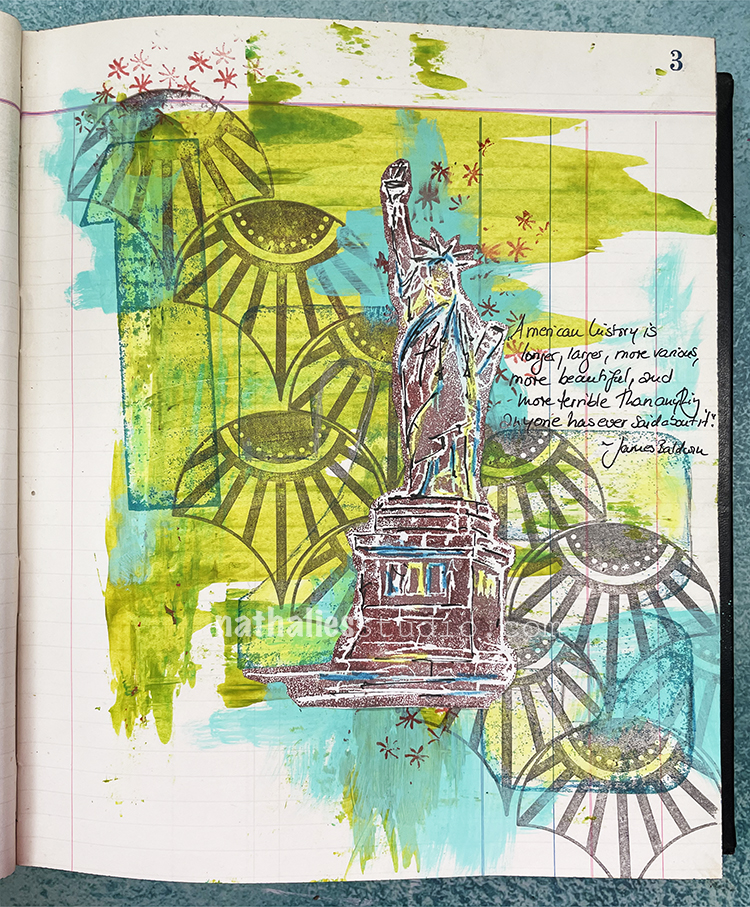 3
"American history is
longer, larger, more various,
more beautiful, and
more terrible than anything
anyone has ever said about it."
~ James Baldwin
nathaliesstudio.com